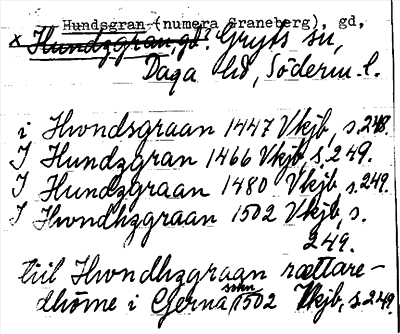 Hundsgran (numera Graneberg), gd,
x Hundzgran, gd? Gryts sn,
Daga hd, Söderm. l.
i Hwndsgraan 1447 Vkjb, s. 248.
I Hundzgran 1466 Vkjb, s. 249.
I Hundzgraan 1480 Vkjb, s. 249.
I Hwndhzgraan 1502 Vkjb, s.
249.
tiil Hwndhzgraan rættare-
dhöme i Gerna smn 1502 Vkjb, s. 249.